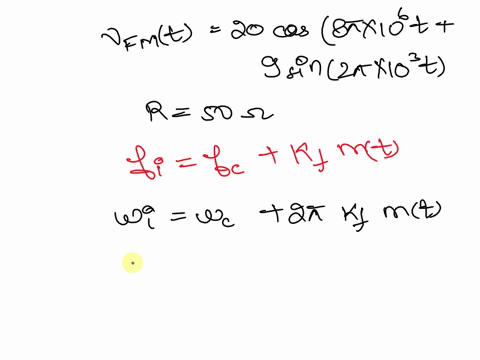 v_FM(t) = 20 cos (8π×10⁶t +
9 sin(2π×10³t)
R = 50 Ω
f_i = f_c + K_f m(t)
ω_i = ω_c + 2π K_f m(t)